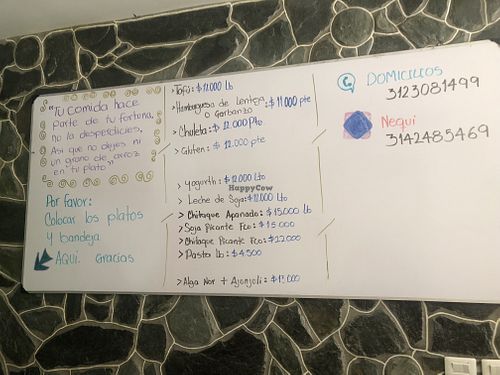 "Tu Comida hace
parte de tu fortuna,
no la desperdicies,
Asi que no dejes ni
un grano de arroz
en tu plato"
Por favor:
Colocar los platos
y bandeja
AQUI. Gracias
> Tofú: $12.000 lb
> Hamburguesa de Lenteja o Garbanzo : $11.000 pte
> Chuleta: $12.000 pte
> Gluten: $12.000 pte
> Yogurth: $12.000 Lto
HappyCow
> Leche de Soja: $11.000 Lto
> Chitaque Apanado: $15.000 lb
> Soja Picante Fco: $15.000
> Chitaque Picante Fco: $22.000
> Pasta lb: $4.500
> Alga Nor + Ajonjoli: $13.000
DOMICILIOS
3123081499
Nequi
3142485469